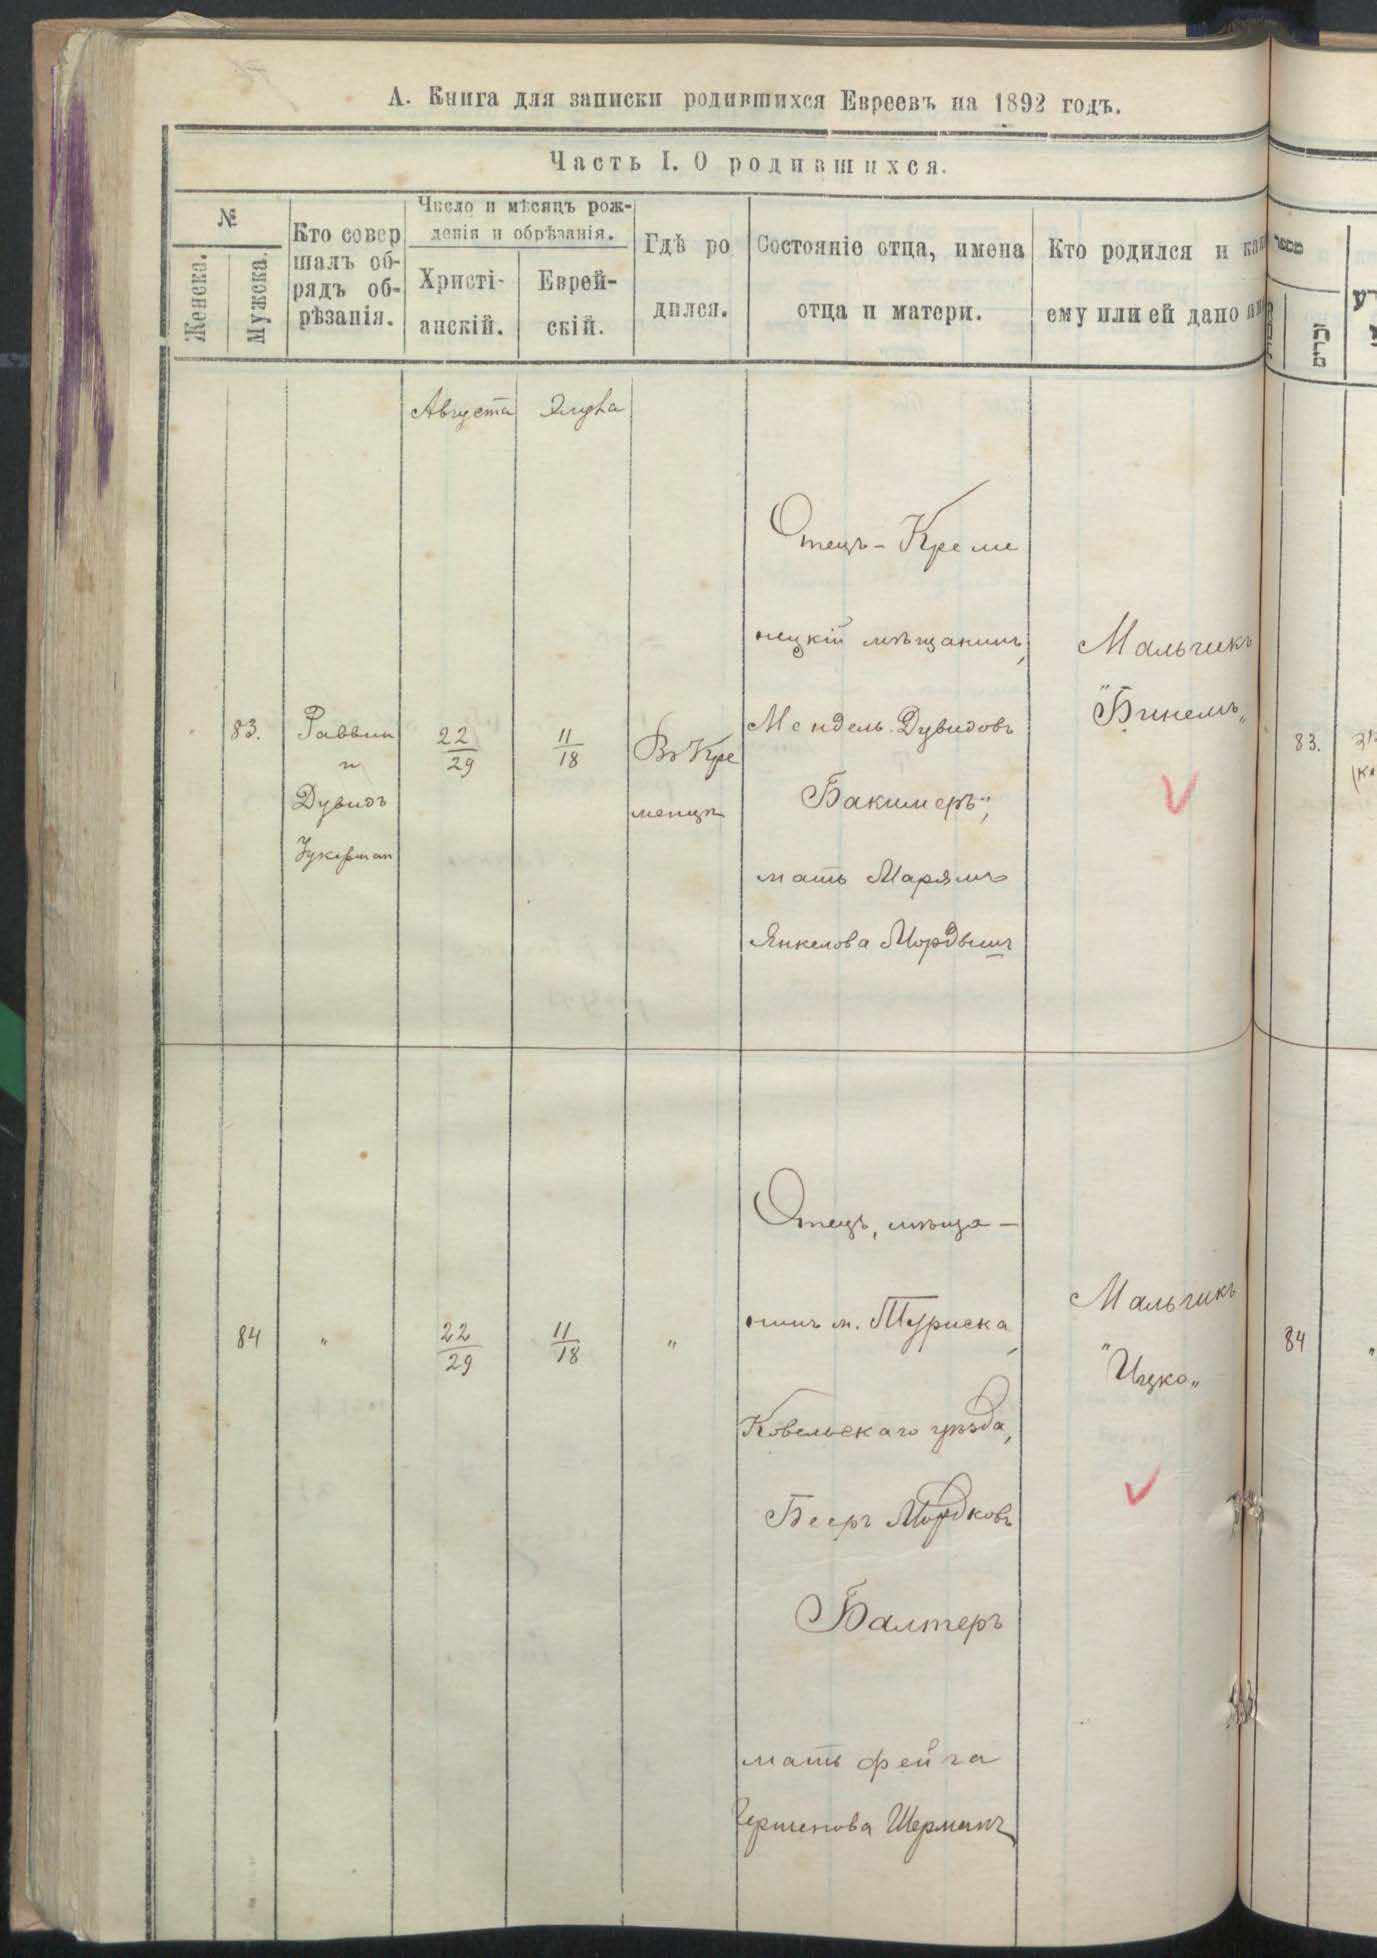 А. Книга для записки родившихся Евреевъ на 1892 годъ.
Часть I. О родившихся.
№
Женска.
Мужска.
Кто совер
шалъ об-
рядъ об-
рѣзанія.
Число и мѣсяцъ рож-
денія и обрѣзанія.
Христі-
анскій.
Еврей-
скій.
Гдѣ ро
дился.
Состояніе отца, имена
отца и матери.
Кто родился и как
ему или ей дано
מספר
זכרים
Августа
Элула
83.
Раввин
Дувидъ
Цукерман
22
29
11
18
Въ Кре
менцѣ
Отецъ - Креме
нецкій мѣщанинъ,
Мендель Дувидовъ
Бакимеръ;
мать Марямъ
Янкелова Мордыш
Мальчикъ
"Бинемъ„
83.
84
"
22
29
11
18
"
Отецъ, мѣща-
нинъ м. Туриска,
Ковельскаго уѣзда,
Бееръ Мордковъ
Балтеръ
мать Фейга
Гершенова Шерманъ
Мальчикъ
"Ицко„
84
"